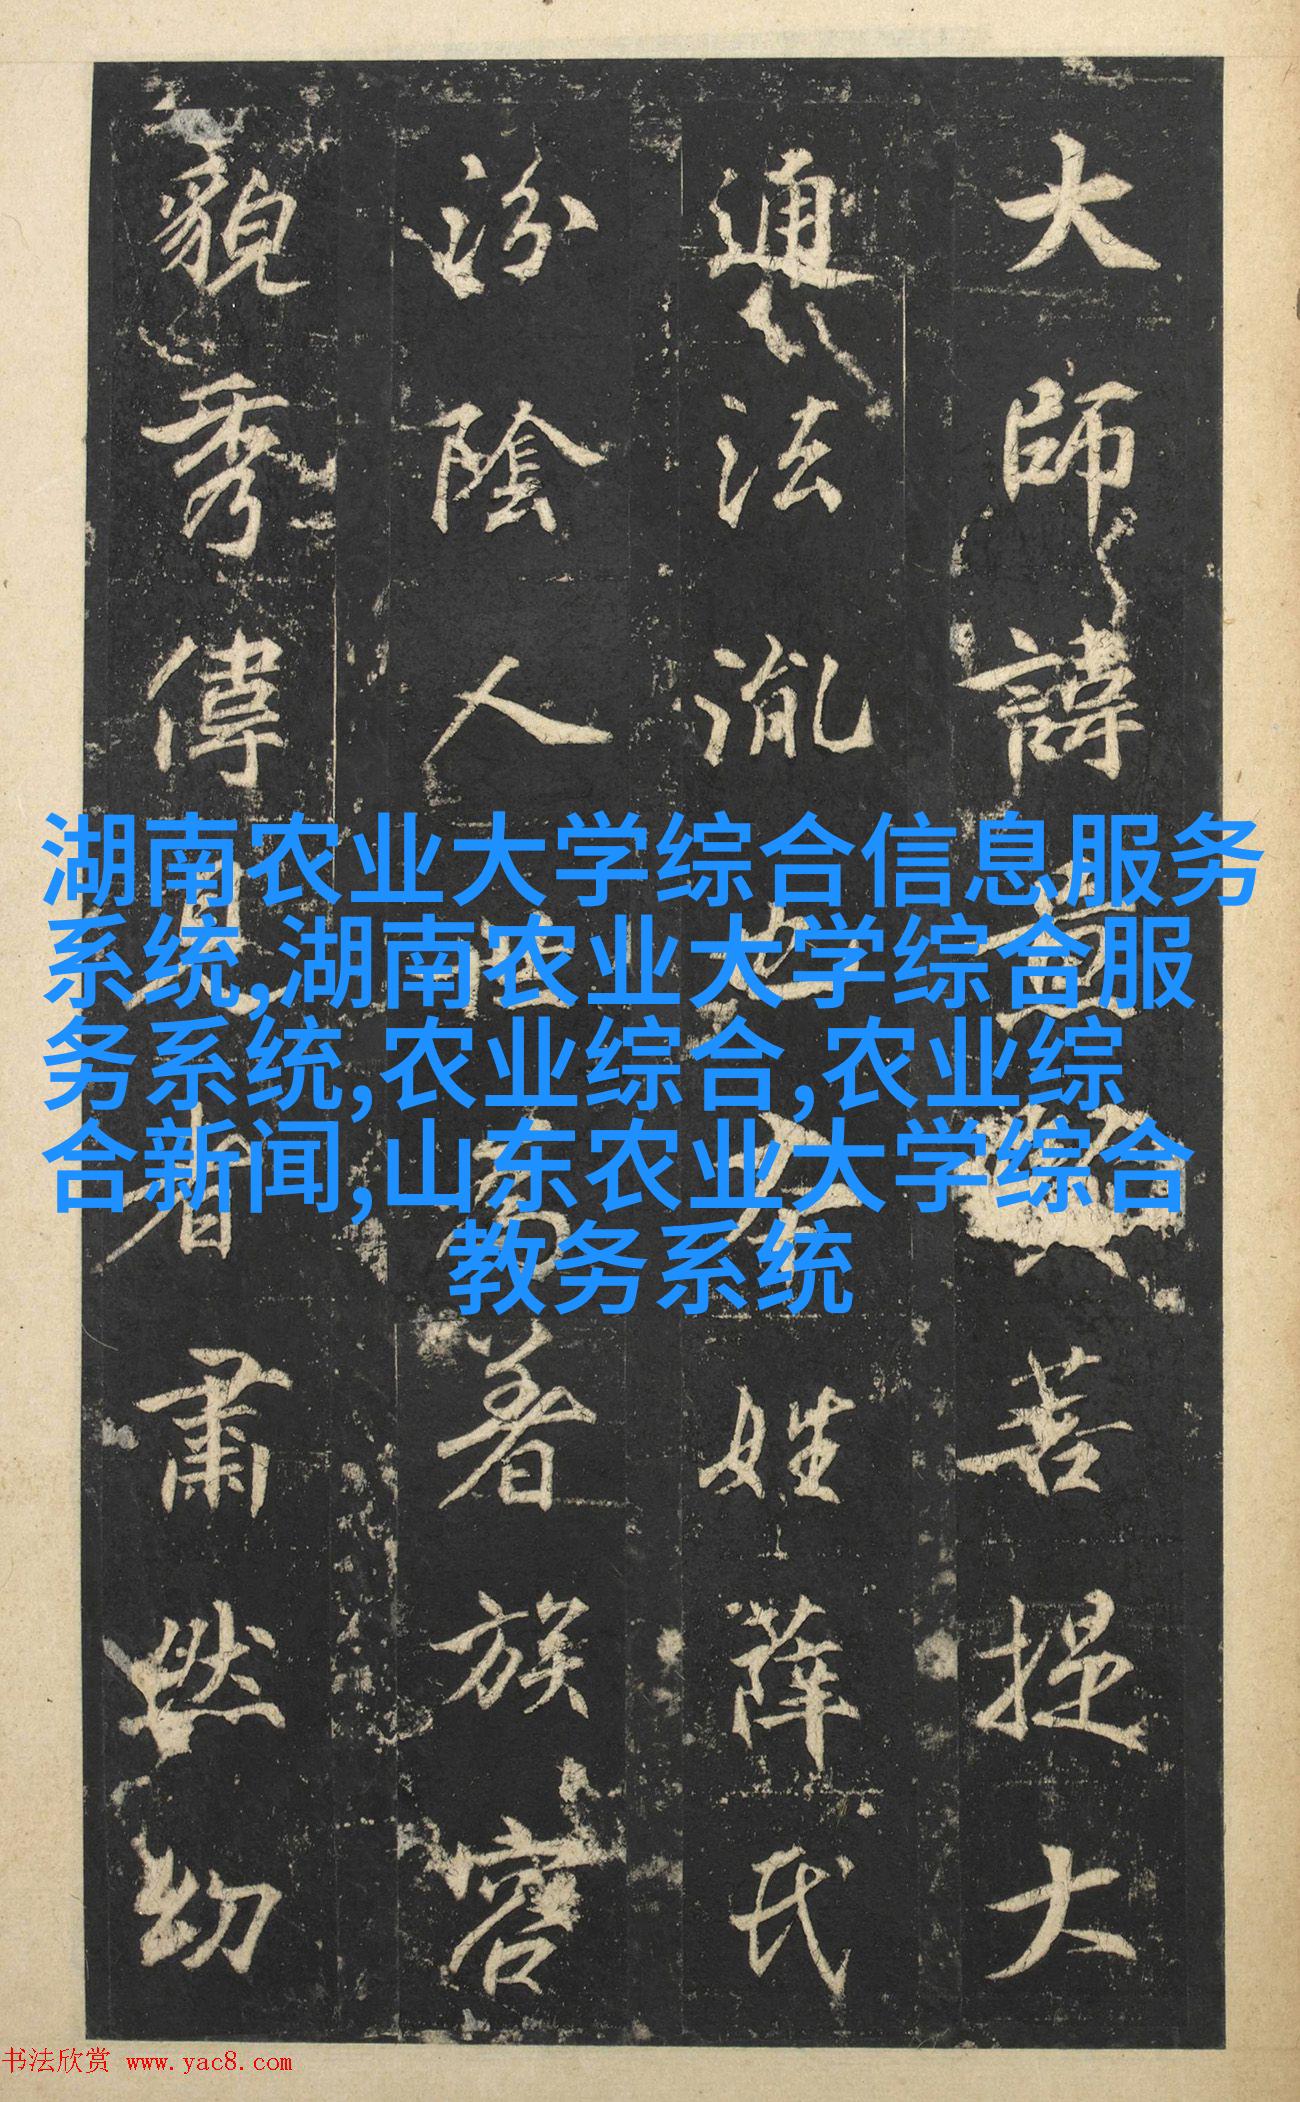 大師諱菩提大
通法胤姓薛氏
汾陰人著族容
貌秀偉見者肅然幼
湖南农业大学综合信息服务
系统,湖南农业大学综合服
务系统,农业综合,农业综
合新闻,山东农业大学综合
教务系统
书法欣赏 www.yac8.com